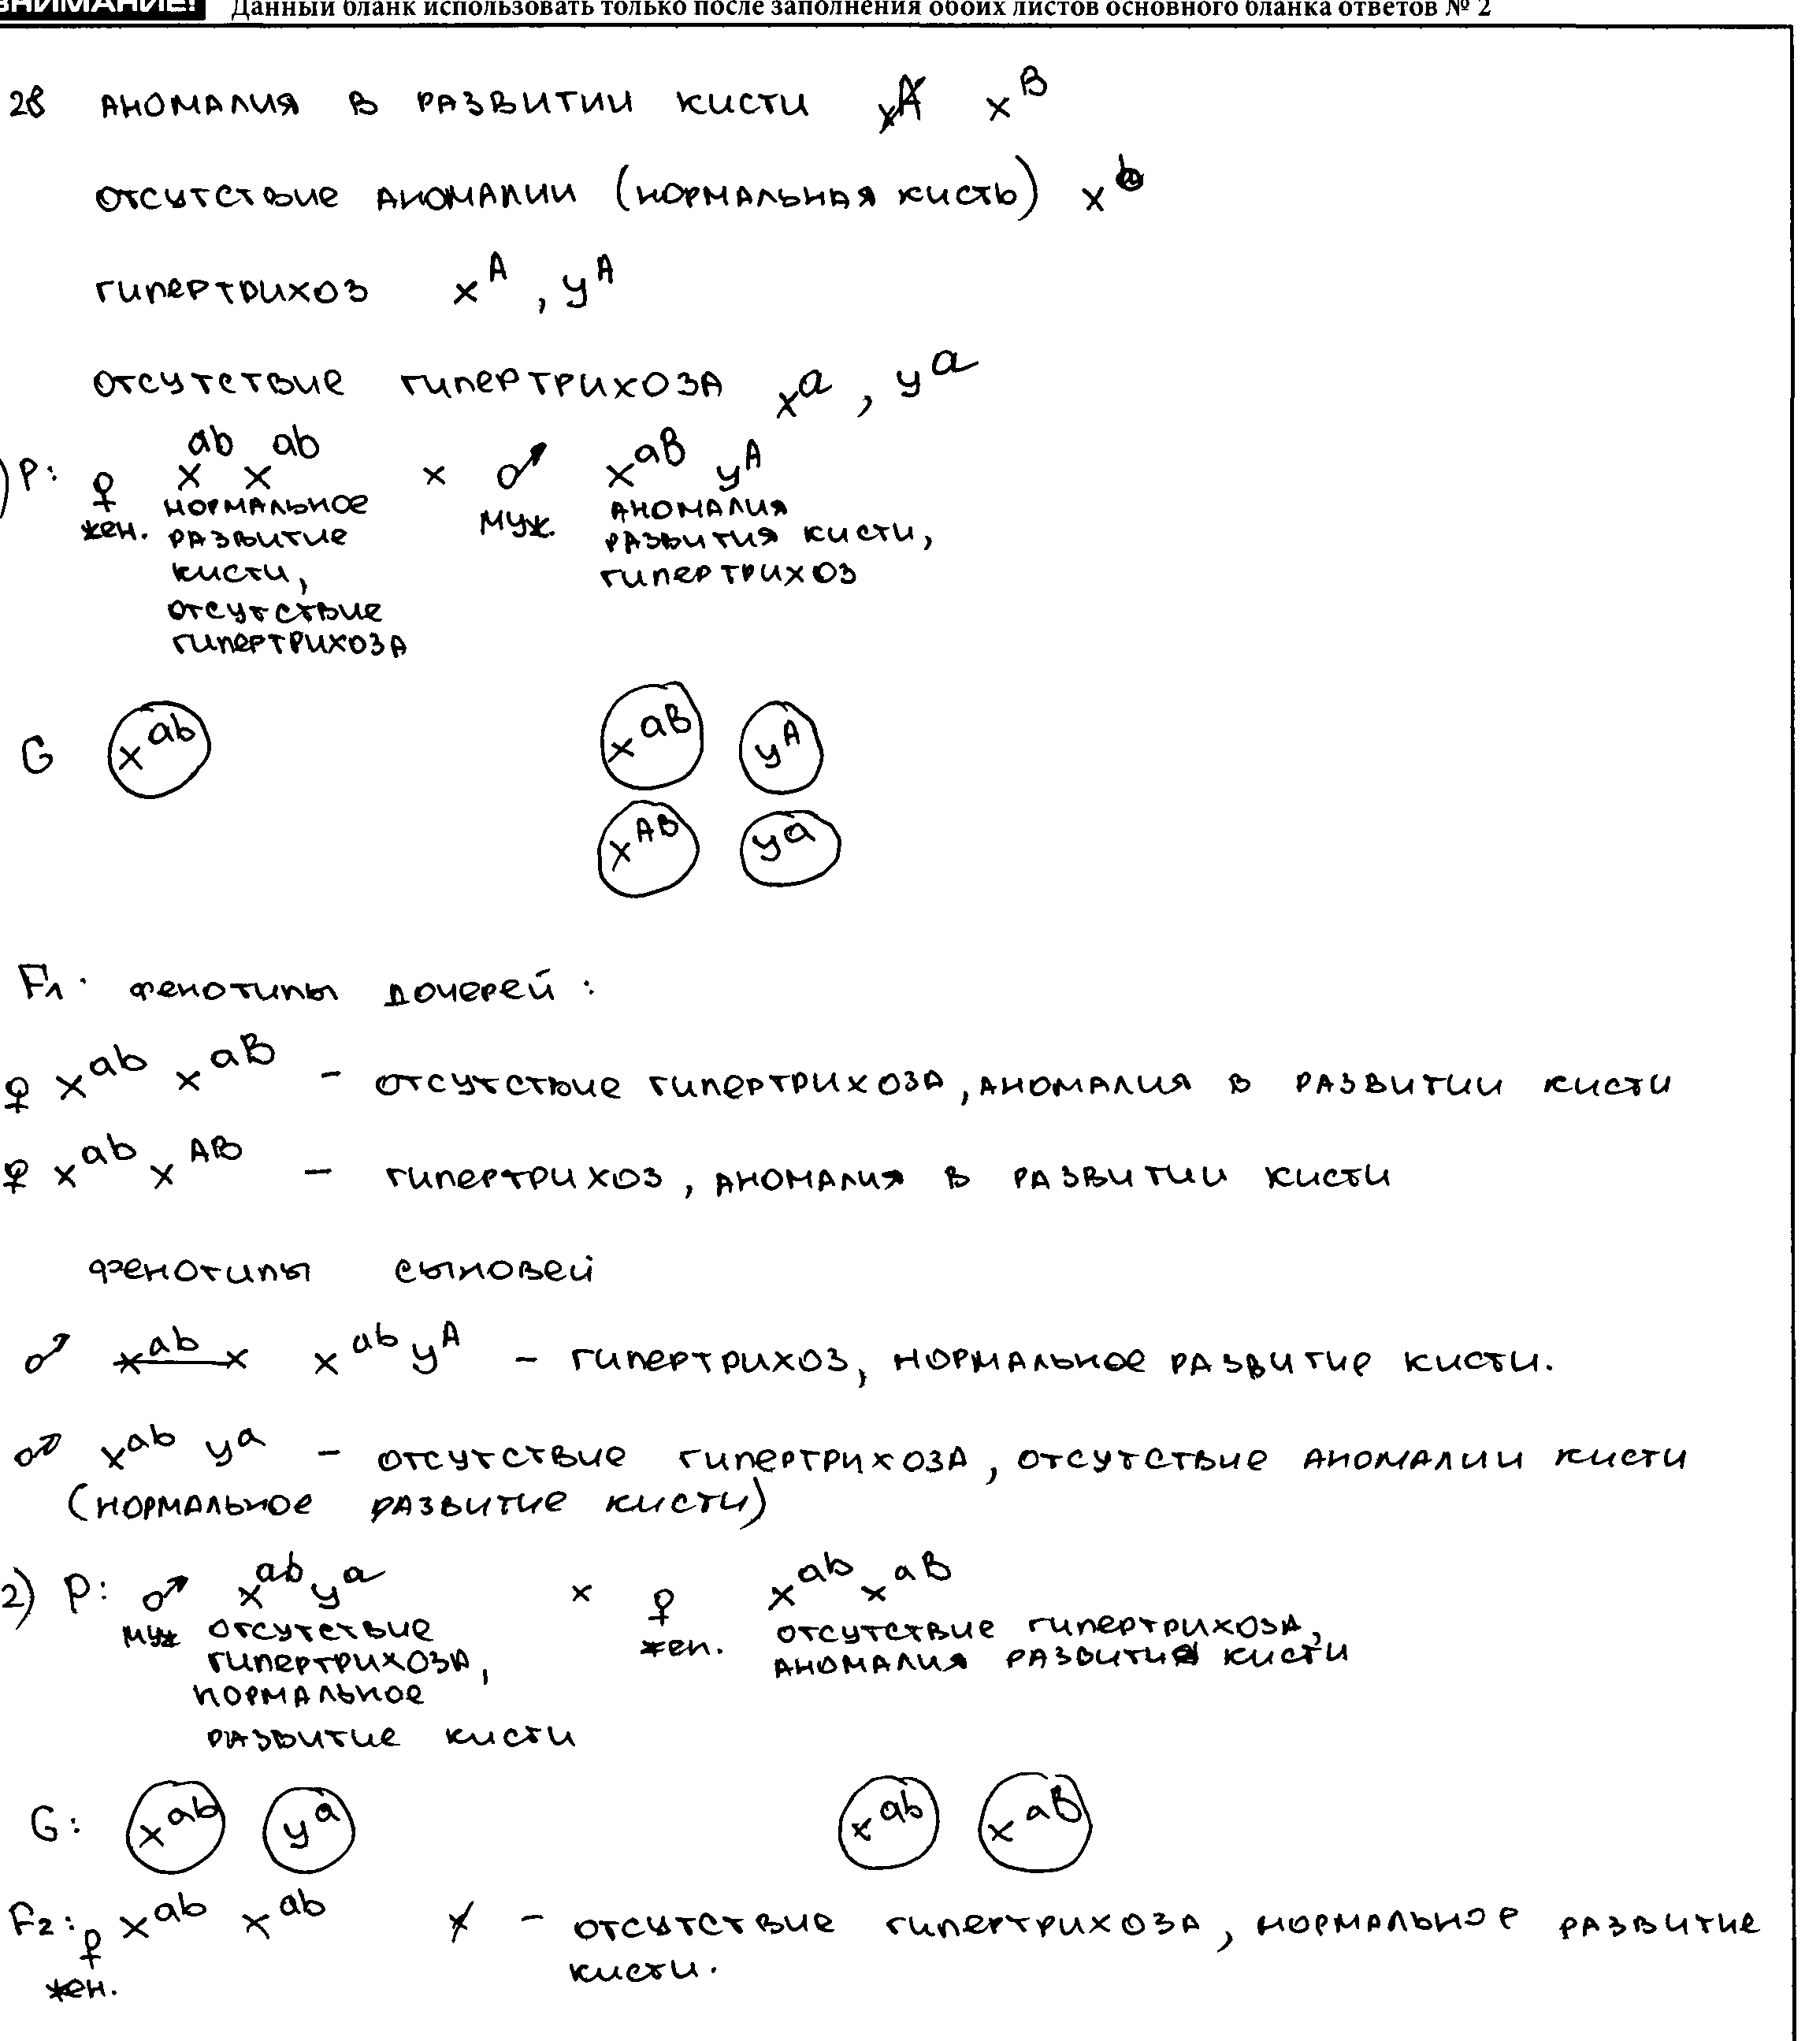 ВНИМАНИЕ! Данный бланк использовать только после заполнения обоих листов основного бланка ответов № 2
28 аномалия в развитии кисти x^B
отсутствие аномалии (нормальная кисть) x^b
гипертрихоз x^A, y^A
отсутствие гипертрихоза x^a, y^a
) P: ♀ x^ab x^ab × ♂ x^aB y^A
жен. нормальное развитие кисти, отсутствие гипертрихоза
муж. аномалия развития кисти, гипертрихоз
G x^ab x^aB y^A
x^AB y^a
F1: фенотипы дочерей:
♀ x^ab x^aB – отсутствие гипертрихоза, аномалия в развитии кисти
♀ x^ab x^AB – гипертрихоз, аномалия в развитии кисти
фенотипы сыновей
♂ x^ab y^A – гипертрихоз, нормальное развитие кисти.
♂ x^ab y^a – отсутствие гипертрихоза, отсутствие аномалии кисти
(нормальное развитие кисти)
2) P: ♂ x^ab y^a × ♀ x^ab x^aB
муж отсутствие гипертрихоза, нормальное развитие кисти
жен. отсутствие гипертрихоза, аномалия развития кисти
G: x^ab y^a x^ab x^aB
F2: ♀ x^ab x^ab – отсутствие гипертрихоза, нормальное развитие
жен. кисти.